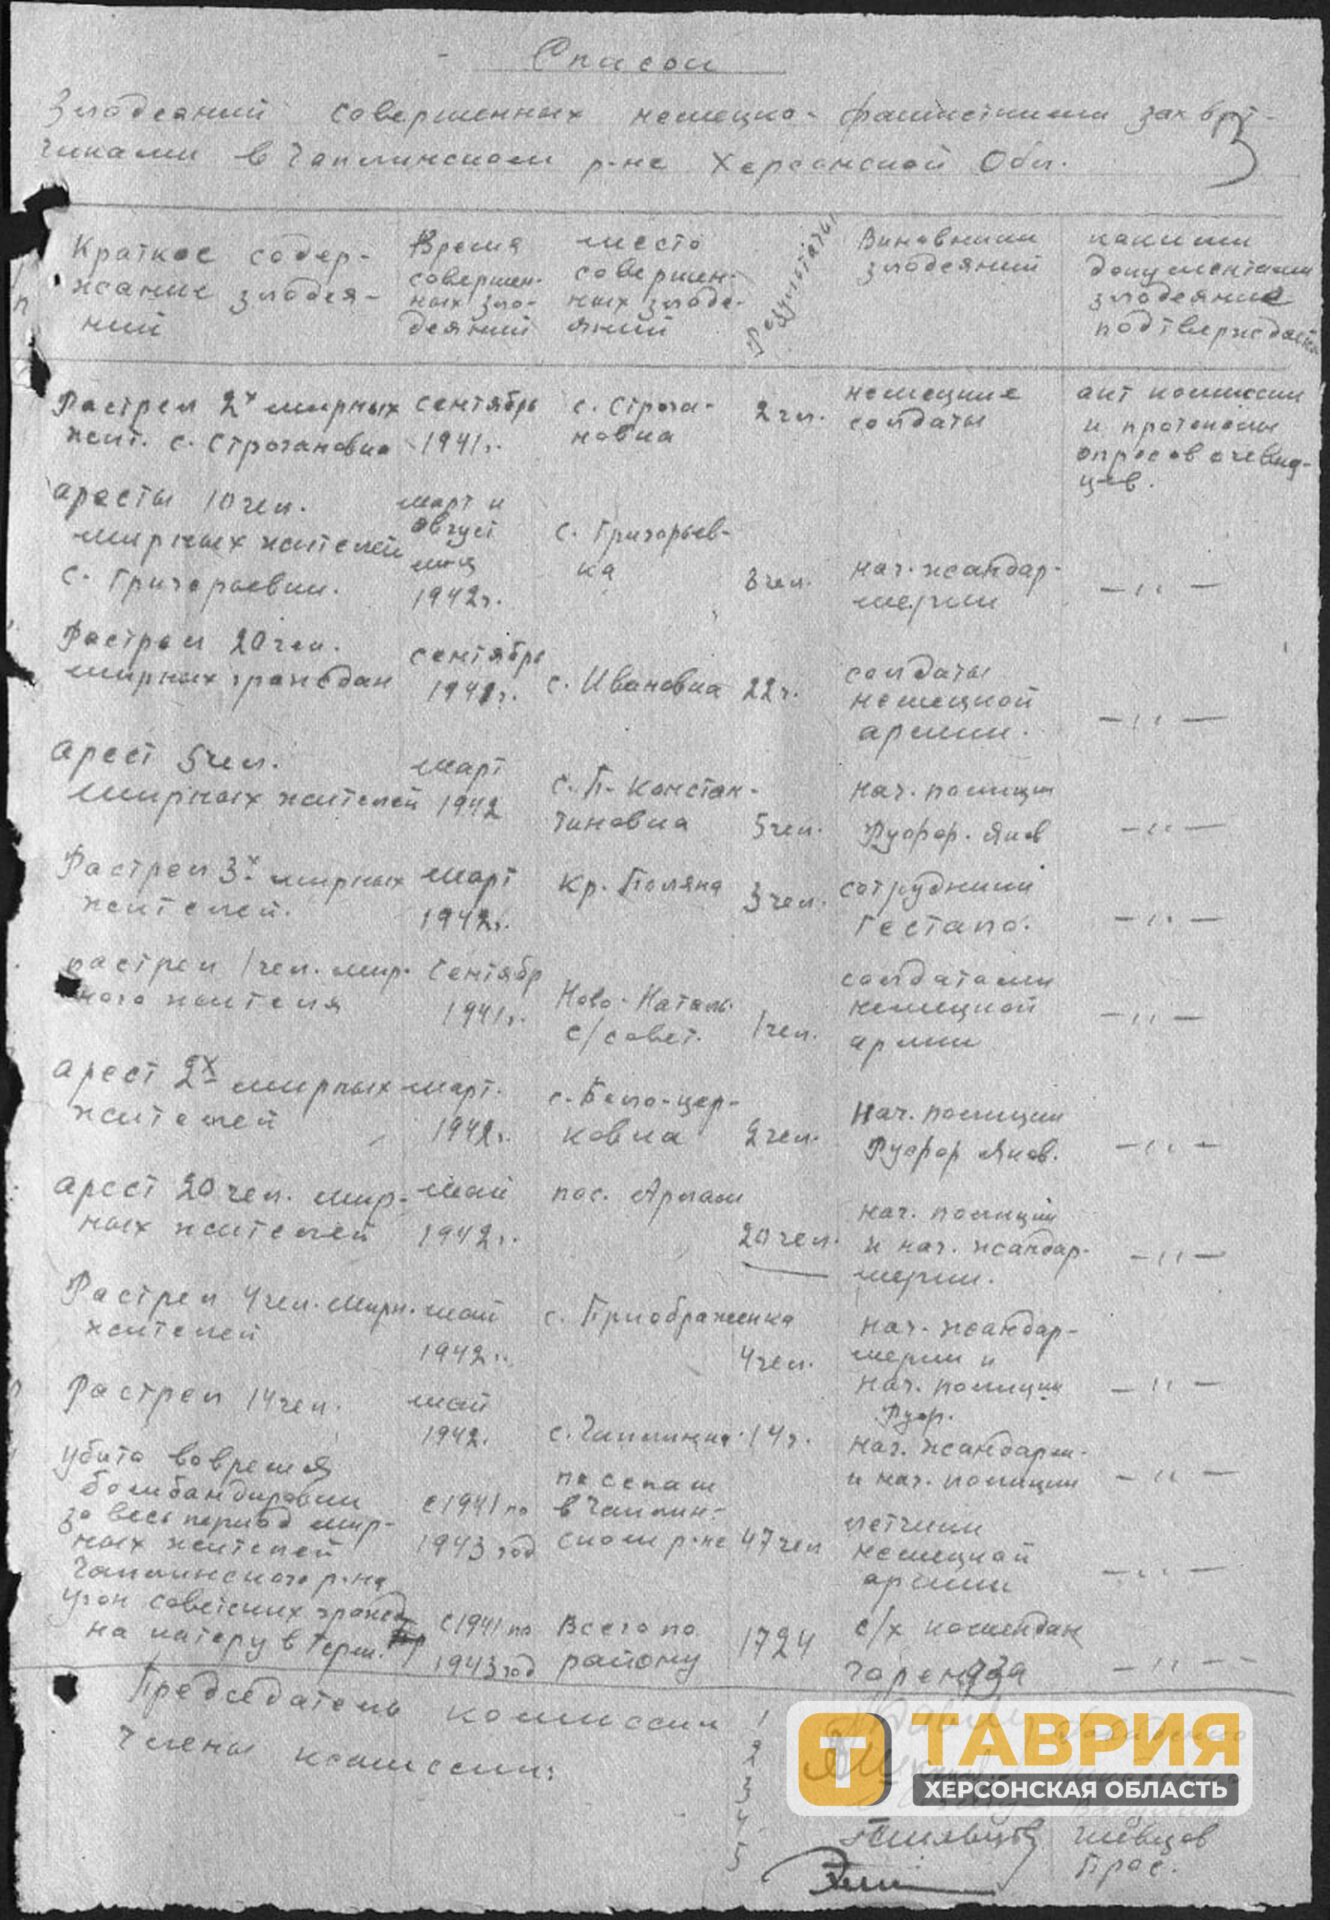 Список
Злодеяний совершенных немецко-фашистскими захват-
чиками в Чаплинском р-не Херсонской Обл.
3
Краткое содер-
жание злодея-
ний
Время
совершен-
ных зло-
деяний
место
совершен-
ных злоде-
яний
результаты
Виновники
злодеяний
какими
документами
злодеяние
подтверждается
Растрел 2х мирных
жит. с. Строгановка
сентябрь
1941г.
с. Строга-
новка
2 чел.
немецкие
солдаты
акт комиссии
и протоколы
опросов очевид-
цев.
аресты 10 чел.
мирных жителей
с. Григорьевки.
март и
август
м-ц
1942г.
с. Григорьев-
ка
чел.
нач. жандар-
мерии
—〃—
Растрел 20 чел.
мирных граждан
сентябрь
194 г.
с. Ивановка
22 ч.
солдаты
немецкой
армии.
—〃—
арест 5 чел.
мирных жителей
март
1942
с. П-Констан-
тиновка
5 чел.
нач. полиции
—〃—
Растрел 3х мирных
жителей.
март
1942г.
Кр. Поляна
3 чел.
сотрудники
гестапо.
—〃—
растрел 1 чел. мир-
ного жителя
Сентябр
1941г.
Ново-Наталь.
с/совет.
1 чел.
солдатами
немецкой
армии
—〃—
арест 2х мирных
жителей
март.
1942г.
с. Бело-цер-
ковка
2 чел.
Нач. полиции
—〃—
арест 20 чел. мир-
ных жителей
май
1942г.
пос.
20 чел.
нач. полиции
и нач. жандар-
мерии.
—〃—
Растрел 4 чел. мирн.
жителей
май
1942г.
с. Приображенка
4 чел.
нач. жандар-
мерии и
нач. полиции
—〃—
Растрел 14 чел.
май
1942.
с. Чаплинка
14 ч.
нач. жандарм.
и нач. полиции
—〃—
убито вовремя
бомбандировки
за весь период мир-
ных жителей
Чаплинского р-на
с 1941 по
1943 год
по селам
в Чаплин-
ском р-не
47 чел
летчики
немецкой
армии
—〃—
угон советских гражд.
на каторгу в Герм.
с 1941 по
1943 год
Всего по
району
1724
с/х комендан
—〃—
Председатель комиссии
Члены комиссии:
1
2
3
4
5
Шевцов
ТАВРИЯ
ХЕРСОНСКАЯ ОБЛАСТЬ